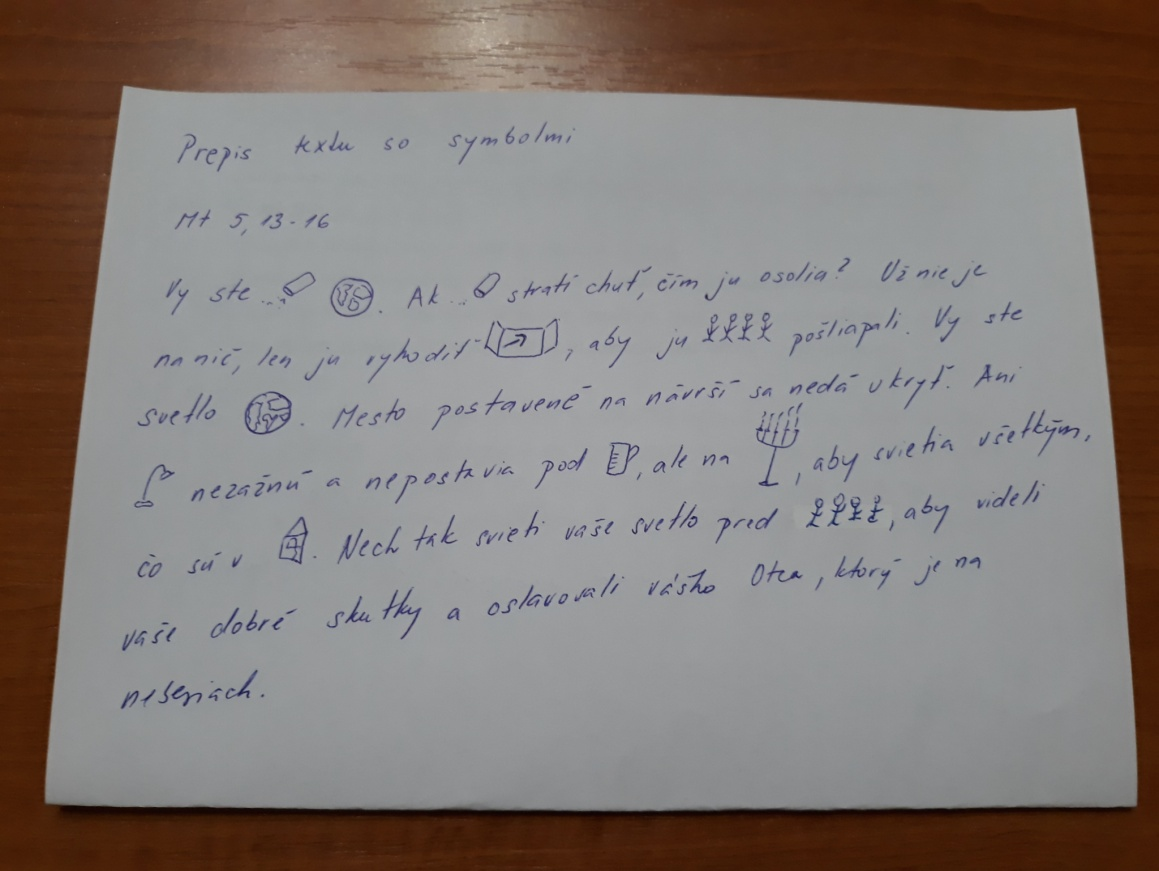 Prepis textu so symbolmi
Mt 5, 13-16
Vy ste . Ak stratí chuť, čím ju osolia? Už nie je
na nič, len ju vyhodiť , aby ju pošliapali. Vy ste
svetlo . Mesto postavené na návrší sa nedá ukryť. Ani
nezažnú a nepostavia pod , ale na , aby svietila všetkým,
čo sú v . Nech tak svieti vaše svetlo pred , aby videli
vaše dobré skutky a oslavovali vášho Otca, ktorý je na
nebesiach.